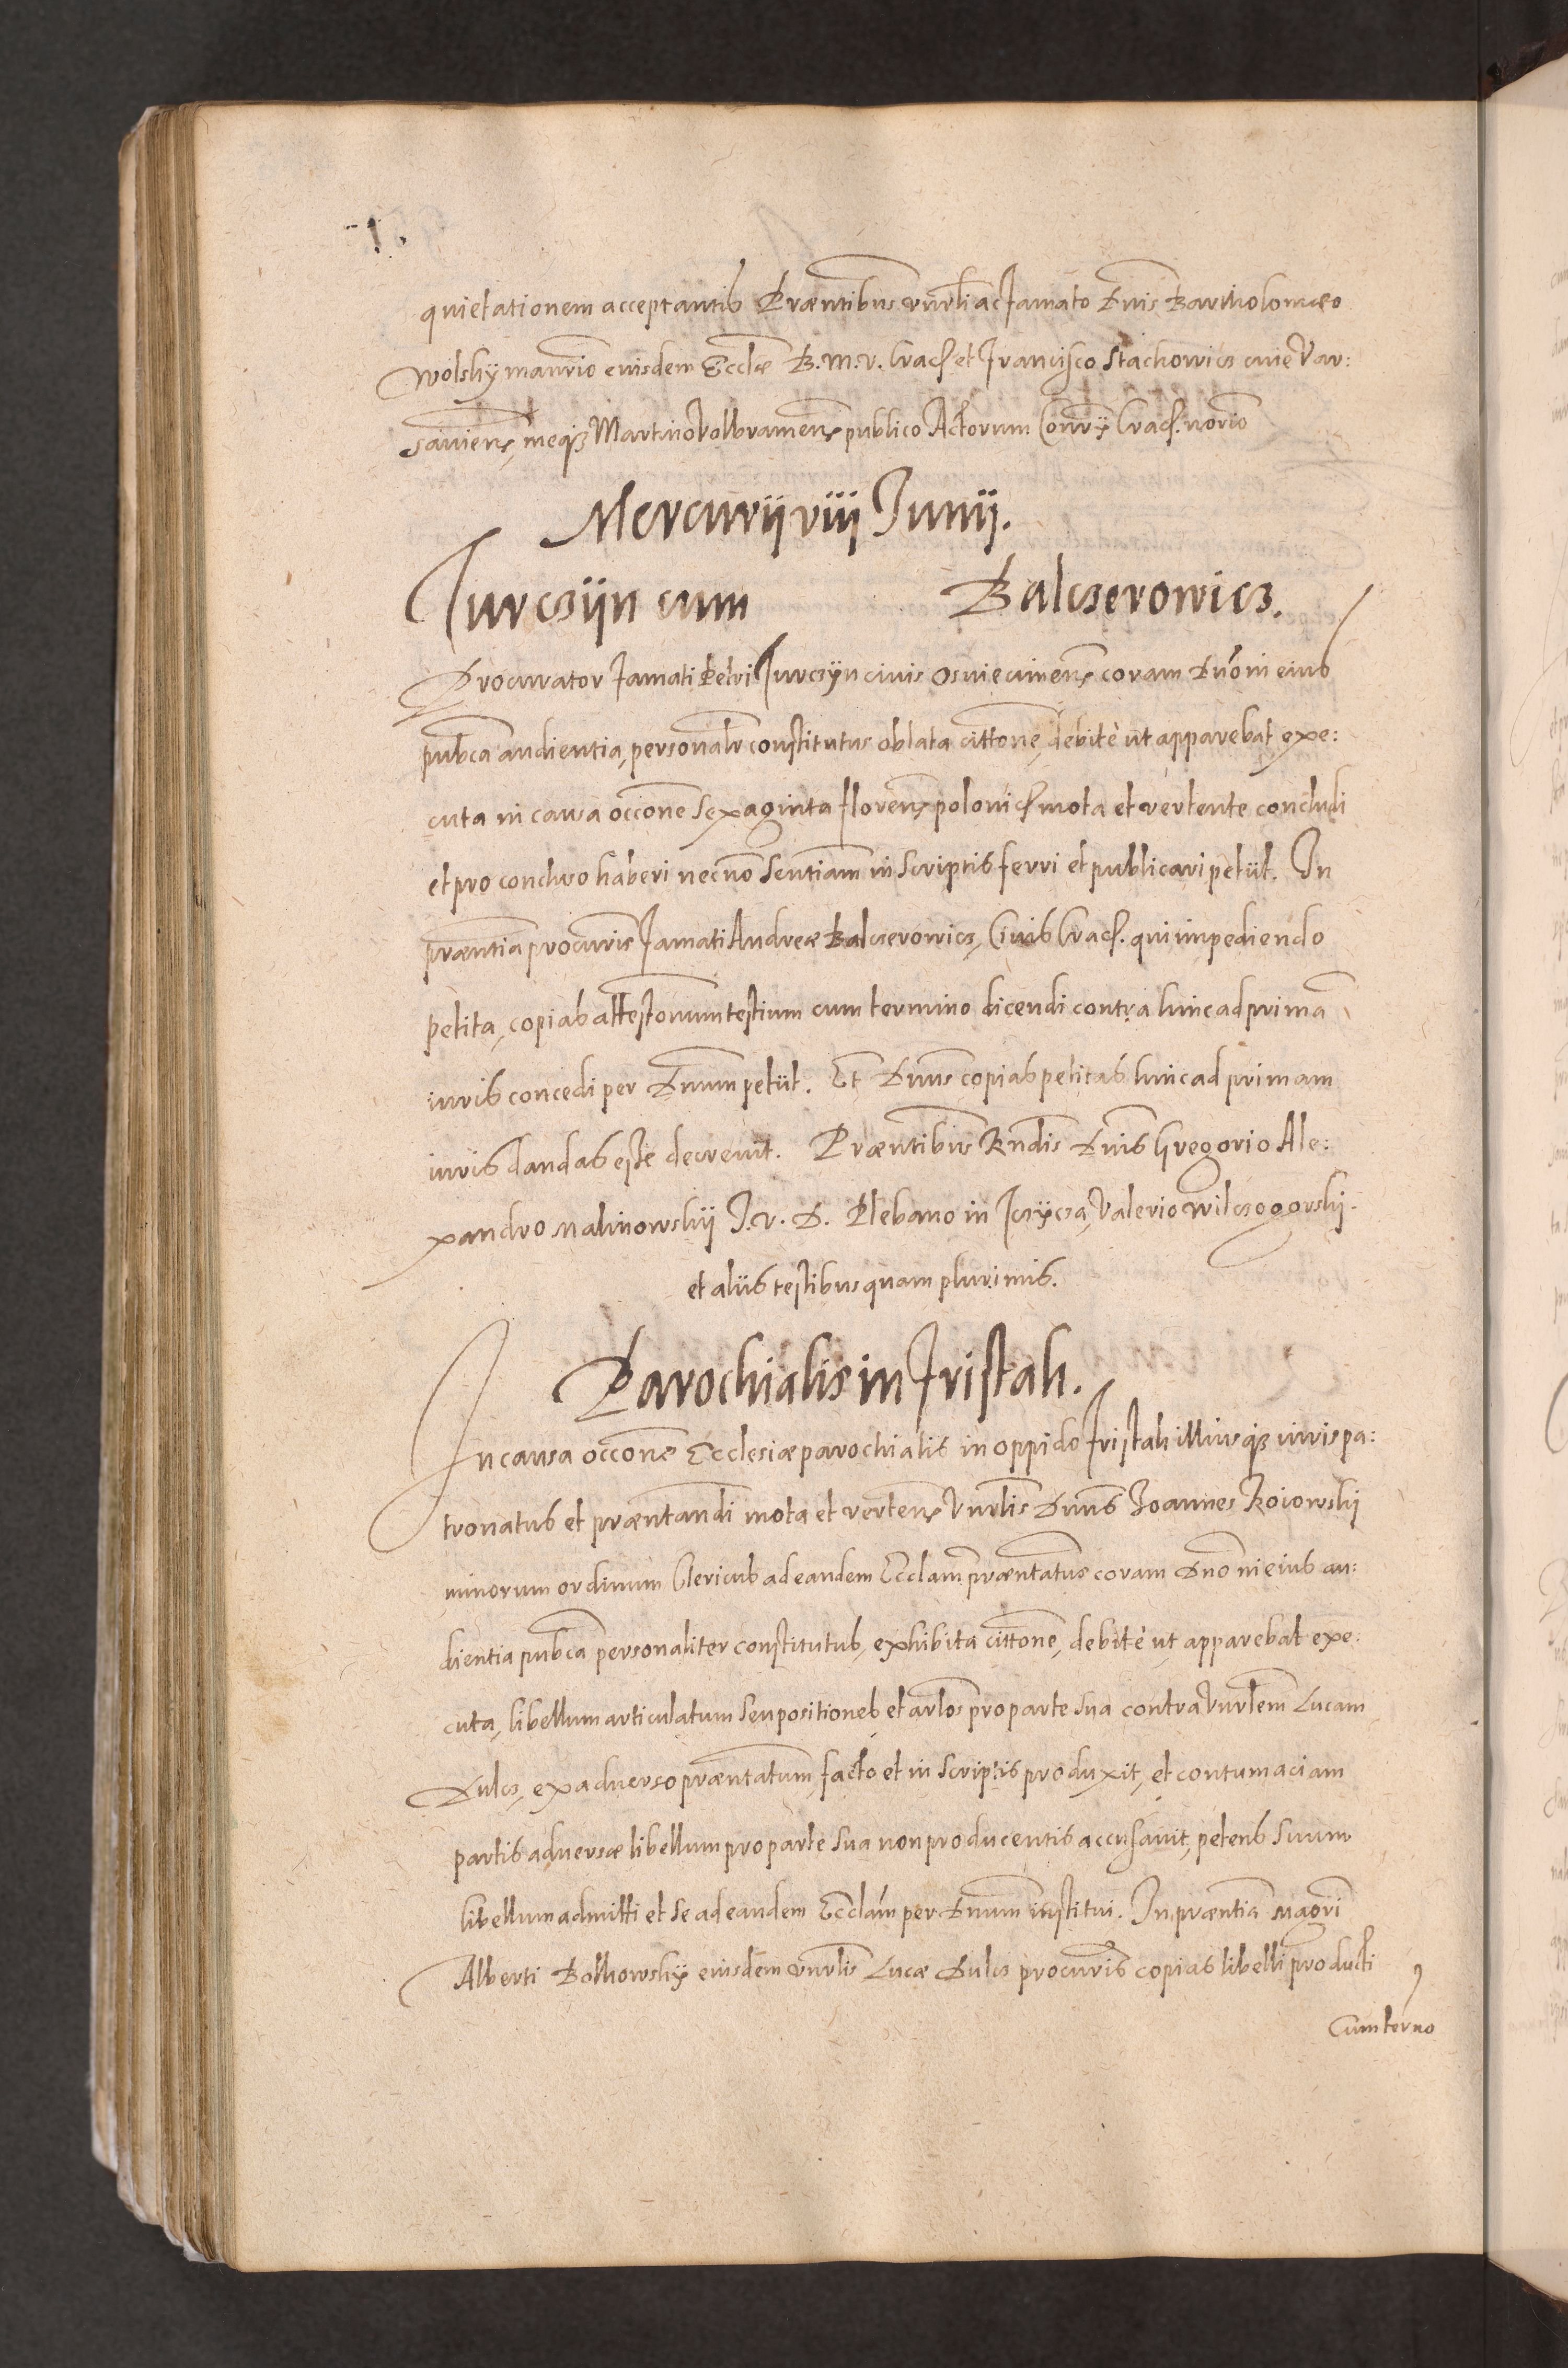 quietationem acceptantib Præntibus vnrli ac famato Dnis Bartholomæo
Wolsky mansrio eiusdem Ecclæ B. M. V. Crac. et Francisco Stachowicz ciue Var:
sauiens, meq3 Martino Volbramens publico Actorum Consrij Crac. norio
Mercurij viij Junij.
Jurczijn cum Balczerowicz.
Procurator famati Petri Jurczijn ciuis Osuiecimens coram Dno in eius
pubca audientia, personalr constitutus oblata cittone, debitè ut apparebat exe:
cuta in causa occone sexaginta florens polonic mota et vertente concludi
et pro concluso haberi necno sentiam in scriptis ferri et publicari petijt. In
præntia procuris famati Andreæ Balczerowicz, Ciuis Crac. qui impediendo
petita, copias attestonum testium cum termino dicendi contra hinc ad prima
iuris concedi per Dnum petijt. Et Dnus copias petitas hinc ad primam
iuris dandas esse decreuit. Præntibus Rndis Dnis Gregorio Ale:
xandro Malinowskij J. V. D. Plebano in Jczijcza, Valerio Wilczogorskj
et alijs testibus quam plurimis.
Parochialis in Fristah.
In causa occone Ecclesiæ parochialis in oppido Fristah illiusq3 iuris pa:
tronatus et præntandi mota et vertens Vnrlis Dnus Joannes Koiowskj
minorum ordinum Clericus ad eandem Ecclam præntatus coram Dno in eius au:
dientia pubca personaliter constitutus, exhibita cittone, debitè ut apparebat exe:
cuta, libellum articulatum seu positiones et artlos pro parte sua contra Vnrlem Lucam
Dulcz, ex aduerso præntatum, facto et in scriptis produxit, et contumaciam
partis aduersæ libellum pro parte sua non producentis accusauit, petens suum
libellum admitti et se ad eandem Ecclam per Dnum institui. In præntia Magri
Alberti Bolkowsky eiusdem vnrlis Lucæ Dulcz procuris copias libelli producti
Cum terno